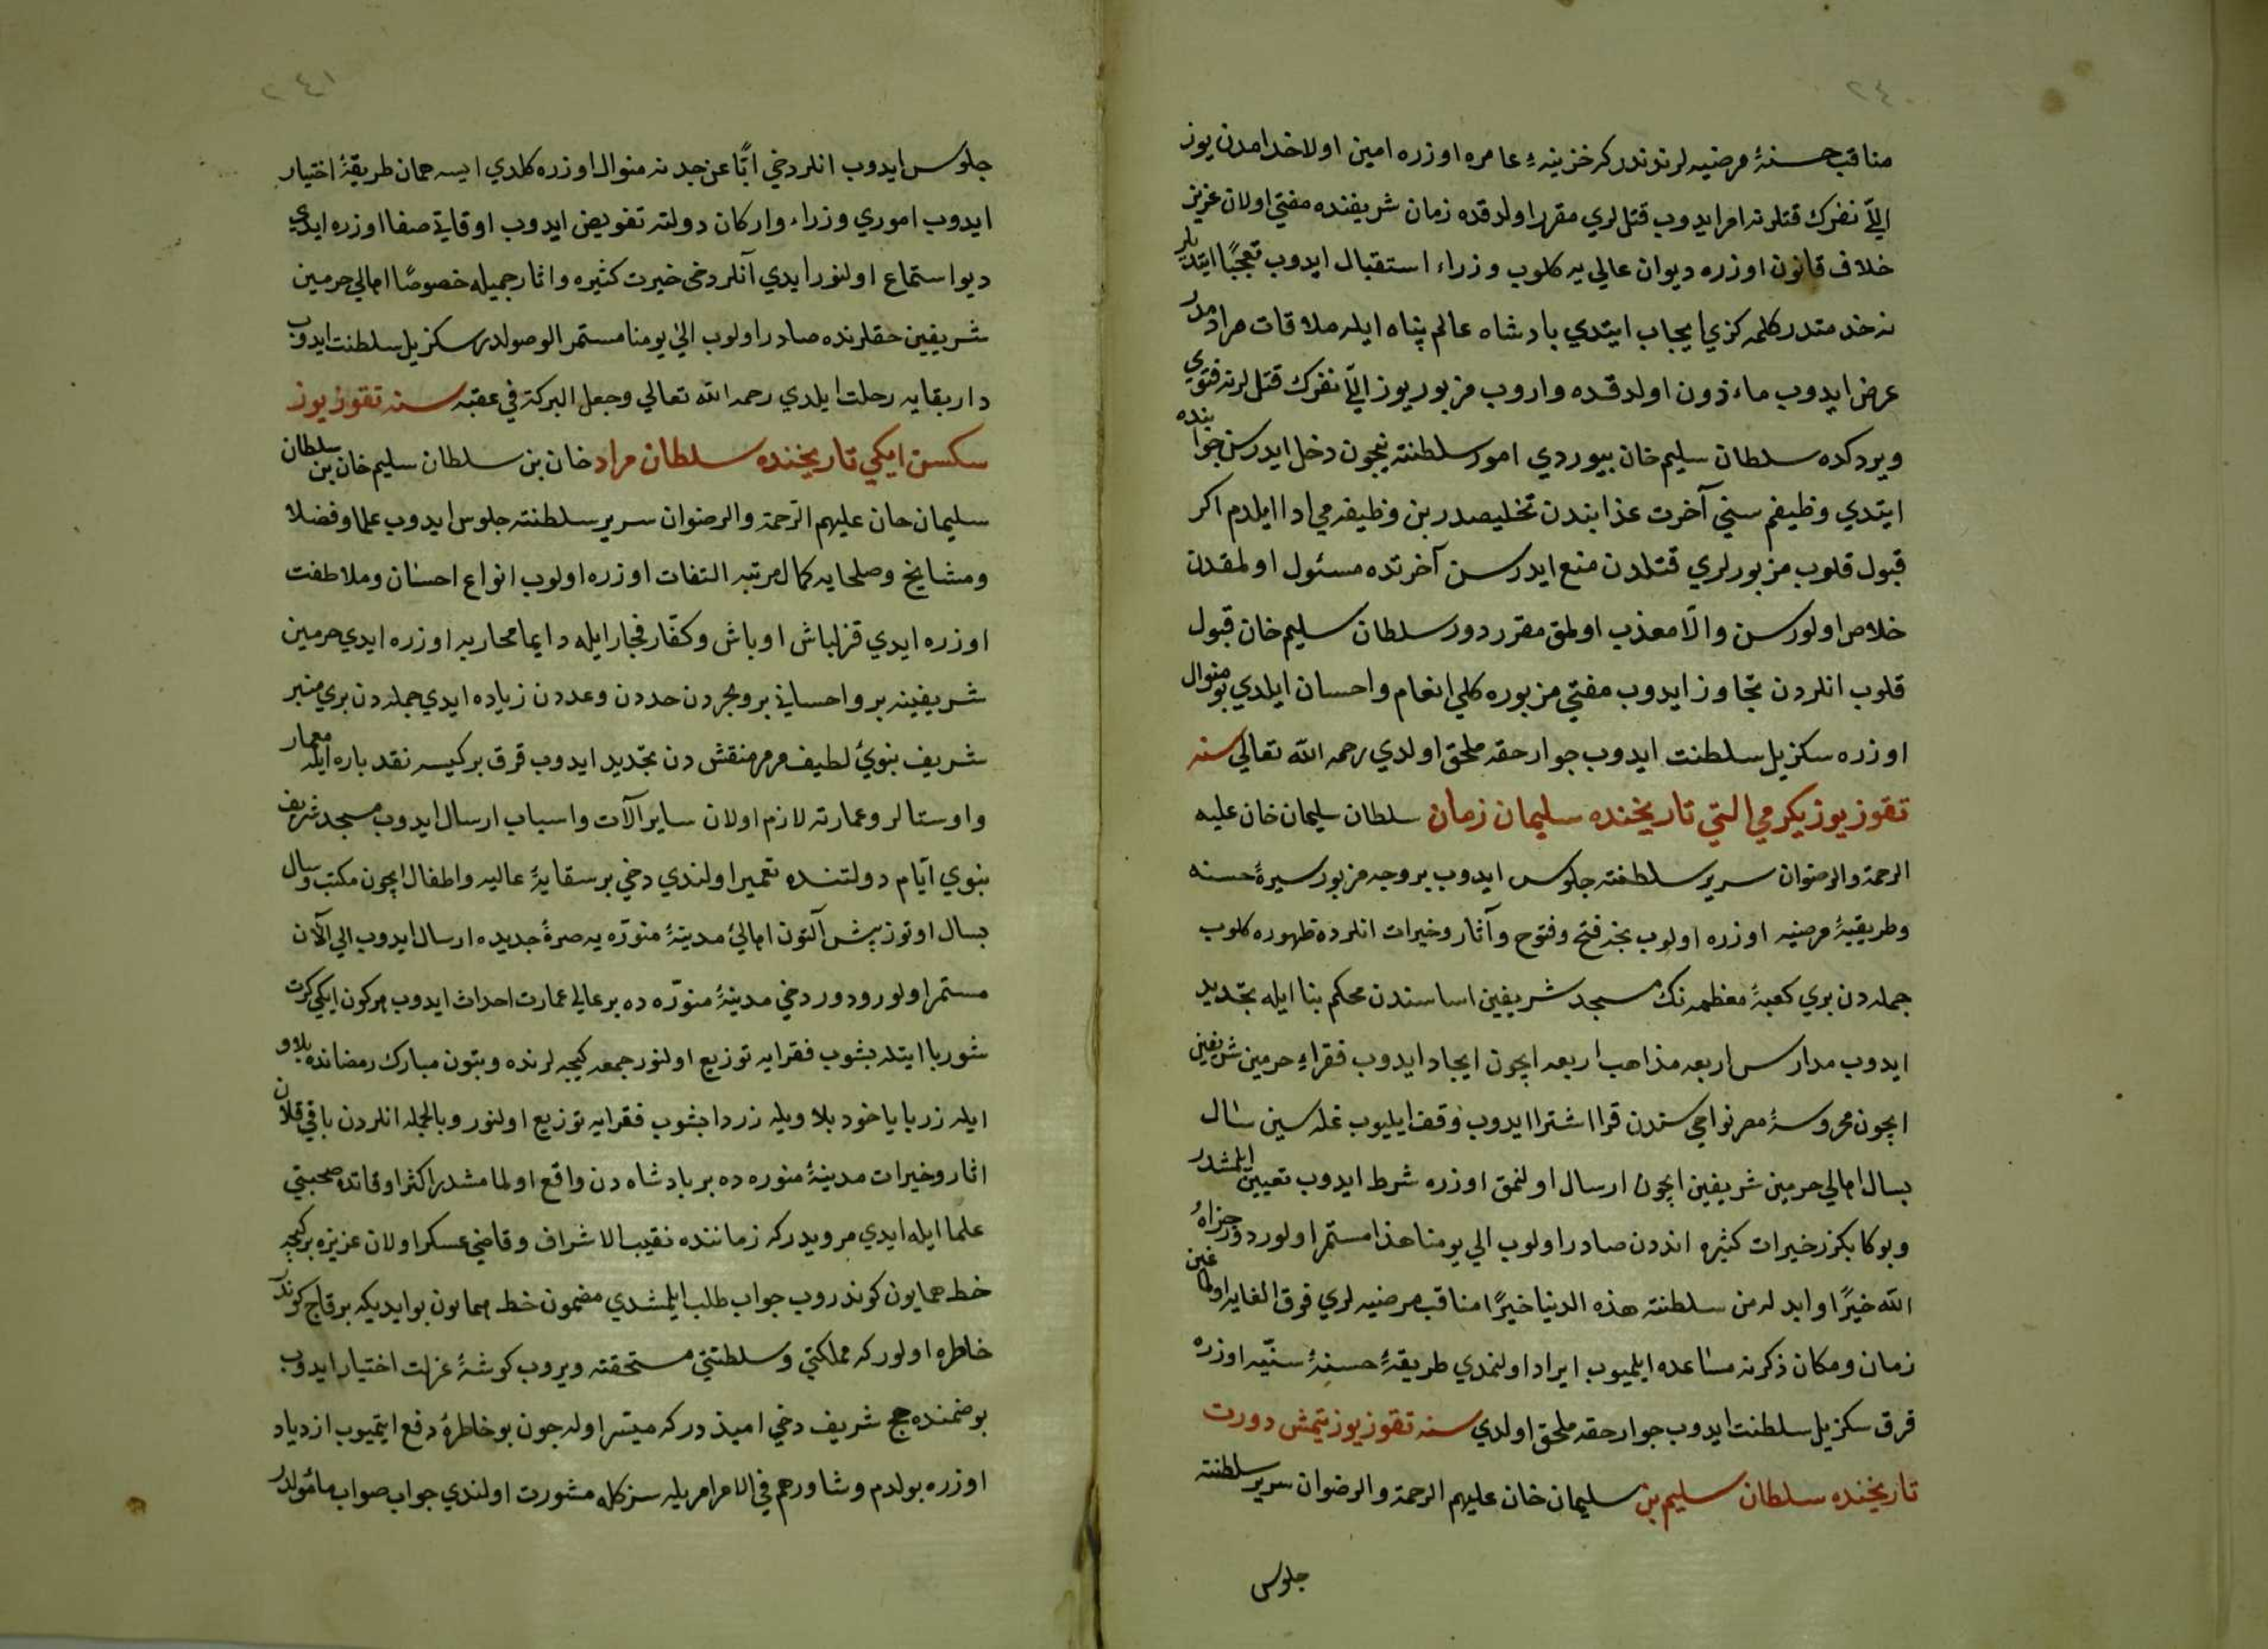 ٢٤٠
مناقب حسنهٔ مرضیه لرندندر که خزینهٔ عامره اوزره امین اولا خدامدن یوز
اللّی نفرك قتلرنه امر ایدوب قتللری مقرر اولدقده زمان شریفنده مفتی اولان عزیز
خلاف قانون اوزره دیوان عالی یه کلوب وزراء استقبال ایدوب تعجبًا ایتدیلر
نه خدمتدر کلمه کزی ایجاب ایتدی پادشاه عالم پناه ایله ملاقات مرادمدر
عرض ایدوب ماءذون اولدقده واروب مزبور یوز اللّی نفرك قتللرنه فتوی
ویردکده سلطان سلیم خان بیوردی امور سلطنته نیچون دخل ایدرسن جوابنده
ایتدی وظیفم سنی آخرت عذابندن تخلیصدر بن وظیفه می ادا ایلدم اکر
قبول قلوب مزبورلری قتلدن منع ایدرسن آخرتده مسئول اولمقدن
خلاص اولورسن والّا معذب اولمق مقرردور سلطان سلیم خان قبول
قلوب انلردن تجاوز ایدوب مفتی مزبوره کلی انعام واحسان ایلدی بو منوال
اوزره سکز یل سلطنت ایدوب جوار حقه ملحق اولدی رحمه الله تعالی سنه
تقوز یوز یکرمی التی تاریخنده سلیمان زمان سلطان سلیمان خان علیه
الرحمة والرضوان سریر سلطنته جلوس ایدوب بر وجه مزبور سیرهٔ حسنه
وطریقهٔ مرضیه اوزره اولوب نجه فتح وفتوح وآثار وخیرات انلرده ظهوره کلوب
جمله دن بری کعبهٔ معظمه نك مسجد شریفین اساسندن محکم بنا ایله تجدید
ایدوب مدارس اربعه مذاهب اربعه ایچون ایجاد ایدوب فقراء حرمین شریفین
ایچون محروسهٔ مصر نواحی سندن قرا اشترا ایدوب وقف ایلیوب غله سین سال
بسال اهالی حرمین شریفین ایچون ارسال اولنمق اوزره شرط ایدوب تعیین ایلمشدر
وبوکا بکزر خیرات کثیره اندن صادر اولوب الی یومنا هذا مستمر اولوردور جزاهُ
الله خیرًا وابدله من سلطنته هذه الدنیا خیرًا مناقب مرضیه لری فوق الغایه اولمغین
زمان ومکان ذکرنه مساعده ایلمیوب ایراد اولنمدی طریقهٔ حسنهٔ سنیّه اوزره
قرق سکز یل سلطنت ایدوب جوار حقه ملحق اولدی سنه تقوز یوز یتمش دورت
تاریخنده سلطان سلیم بن سلیمان خان علیهم الرحمة والرضوان سریر سلطنته
جلوس
٢٤١
جلوس ایدوب انلر دخی ابًّا عن جد نه منوال اوزره کلدی ایسه همان طریقهٔ اختیار
ایدوب اموری وزراء وارکان دولته تفویض ایدوب اوقاتی صفا اوزره ایدی
دیو استماع اولنور ایدی آنلر دخی خیرت کثیره واثار جمیله خصوصًا اهالی حرمین
شریفین حقلرنده صادر اولوب الیٰ یومنا مستمر الوصولدر سکز یل سلطنت ایدوب
دار بقایه رحلت ایلدی رحمه الله تعالی وجعل البرکة فی عقبه سنه تقوز یوز
سکسن ایکی تاریخنده سلطان مراد خان بن سلطان سلیم خان بن سلطان
سلیمان خان علیهم الرحمة والرضوان سریر سلطنته جلوس ایدوب علما وفضلا
ومشایخ وصلحایه کمال مرتبه التفات اوزره اولوب انواع احسان وملاطفت
اوزره ایدی قزلباش اوباش وکفّار فجار ایله دایما محاربه اوزره ایدی حرمین
شریفینه بر واحسانی بر وبحردن حددن وعددن زیاده ایدی جمله دن بری منبر
شریف نبویٔ لطیف مرمر منقش دن تجدید ایدوب قرق بر کیسه نقد پاره ایله معمار
واوستالر وعمارته لازم اولان سایر آلات واسباب ارسال ایدوب مسجد شریف
نبوی ایّام دولتنده تعمیر اولندی دخی بر سقایهٔ عالیه واطفال ایچون مکتب وسال
بسال اوتوز بیش آلتون اهالیٔ مدینهٔ منوّره یه صرهٔ جدیده ارسال ایدوب الی الآن
مستمر اولورودور دخی مدینهٔ منوّره ده بر عالی عمارت احداث ایدوب هر کون ایکی کرت
شوربا ایتله بشوب فقرایه توزیع اولنور جمعه کیجه لرنده وبتون مبارك رمضانده پلاو
ایله زربا یاخود پلاویله زردا بشوب فقرایه توزیع اولنور وبالجمله انلردن باقی قلان
اثار وخیرات مدینهٔ منوره ده بر پادشاه دن واقع اولمامشدر اکثر اوقاتده صحبتی
علما ایله ایدی مرویدرکه زماننده نقیب الاشراف وقاضی عسکر اولان عزیزه بر کیجه
خط همایون کوندروب جواب طلب ایلمشدی مضمون خط همایون بو ایدیکه بر قاچ کوندر
خاطره اولورکه مملکتی وسلطنتی مستحقنه ویروب کوشهٔ عزلت اختیار ایدوب
بو ضمنده حج شریف دخی امیذ درکه میسّر اوله چون بو خاطرهٔ دفع ایتمیوب ازدیاد
اوزره بولدم وشاورهم فی الامر امریله سزکله مشورت اولندی جواب صواب مأمولدر